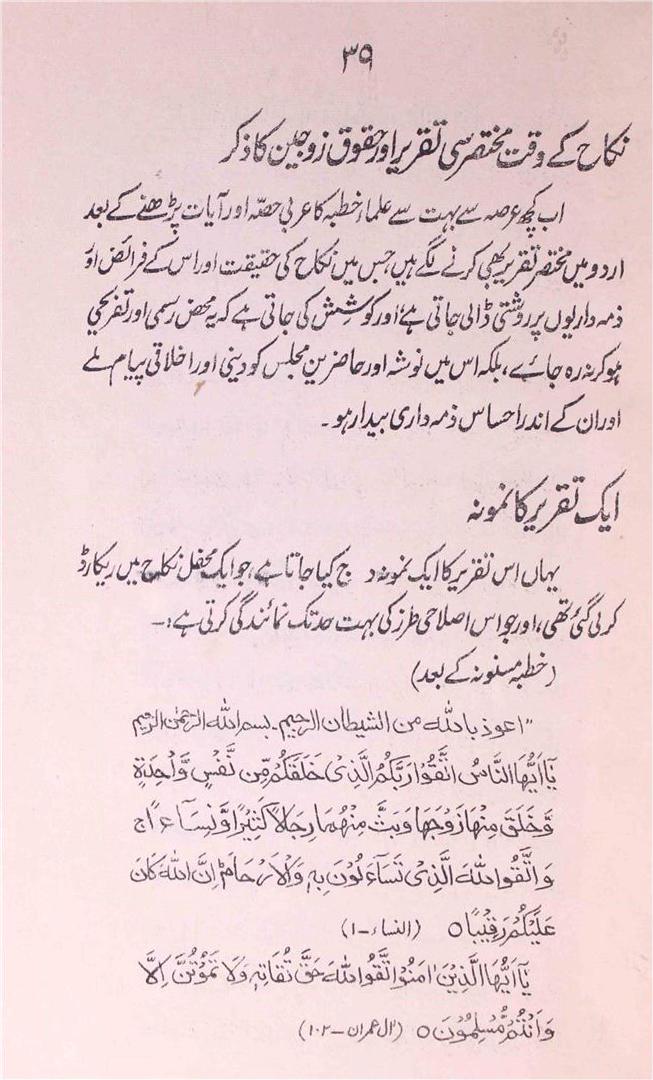 ۳۹
نکاح کے وقت مختصر سی تقریر اور حقوق زوجین کا ذکر
اب کچھ عرصہ سے بہت سے علماء خطبہ کا عربی حصّہ اور آیات پڑھنے کے بعد
اردو میں مختصر تقریر بھی کرنے لگے ہیں جس میں نکاح کی حقیقت اور اس کے فرائض اور
ذمہ داریوں پر روشنی ڈالی جاتی ہے، اور کوشش کی جاتی ہے کہ یہ محض رسمی اور تفریحی
ہو کر نہ رہ جائے، بلکہ اس میں نوشہ اور حاضرین مجلس کو دینی اور اخلاقی پیام ملے
اور ان کے اندر احساس ذمہ داری بیدار ہو۔
ایک تقریر کا نمونہ
یہاں اس تقریر کا ایک نمونہ د ج کیا جاتا ہے، جو ایک محفل نکاح میں ریکارڈ
کرلی گئی تھی، اور جو اس اصلاحی طرز کی بہت حد تک نمائندگی کرتی ہے:۔
(خطبہ مسنونہ کے بعد)
"اعوذ باللہ من الشیطان الرجیم۔ بسم اللہ الرحمٰن الرحیم
يَآ اَيُّهَا النَّاسُ اتَّقُوْا رَبَّكُمُ الَّذِىْ خَلَقَكُمْ مِّنْ نَّفْسٍ وَّاحِدَةٍ
وَّخَلَقَ مِنْهَا زَوْجَهَا وَبَثَّ مِنْهُمَا رِجَالًا كَثِيْرًا وَّنِسَآءً ج
وَاتَّقُوا اللهَ الَّذِىْ تَسَآءَلُوْنَ بِهٖ وَالْاَرْحَامَ ط اِنَّ اللهَ كَانَ
عَلَيْكُمْ رَقِيْبًا ○ (النساء -۱)
يَآ اَيُّهَا الَّذِيْنَ اٰمَنُوا اتَّقُوا اللهَ حَقَّ تُقَاتِهٖ وَلَا تَمُوْتُنَّ اِلَّا
وَاَنْتُمْ مُّسْلِمُوْنَ ○ (اٰل عمران -۱۰۲)